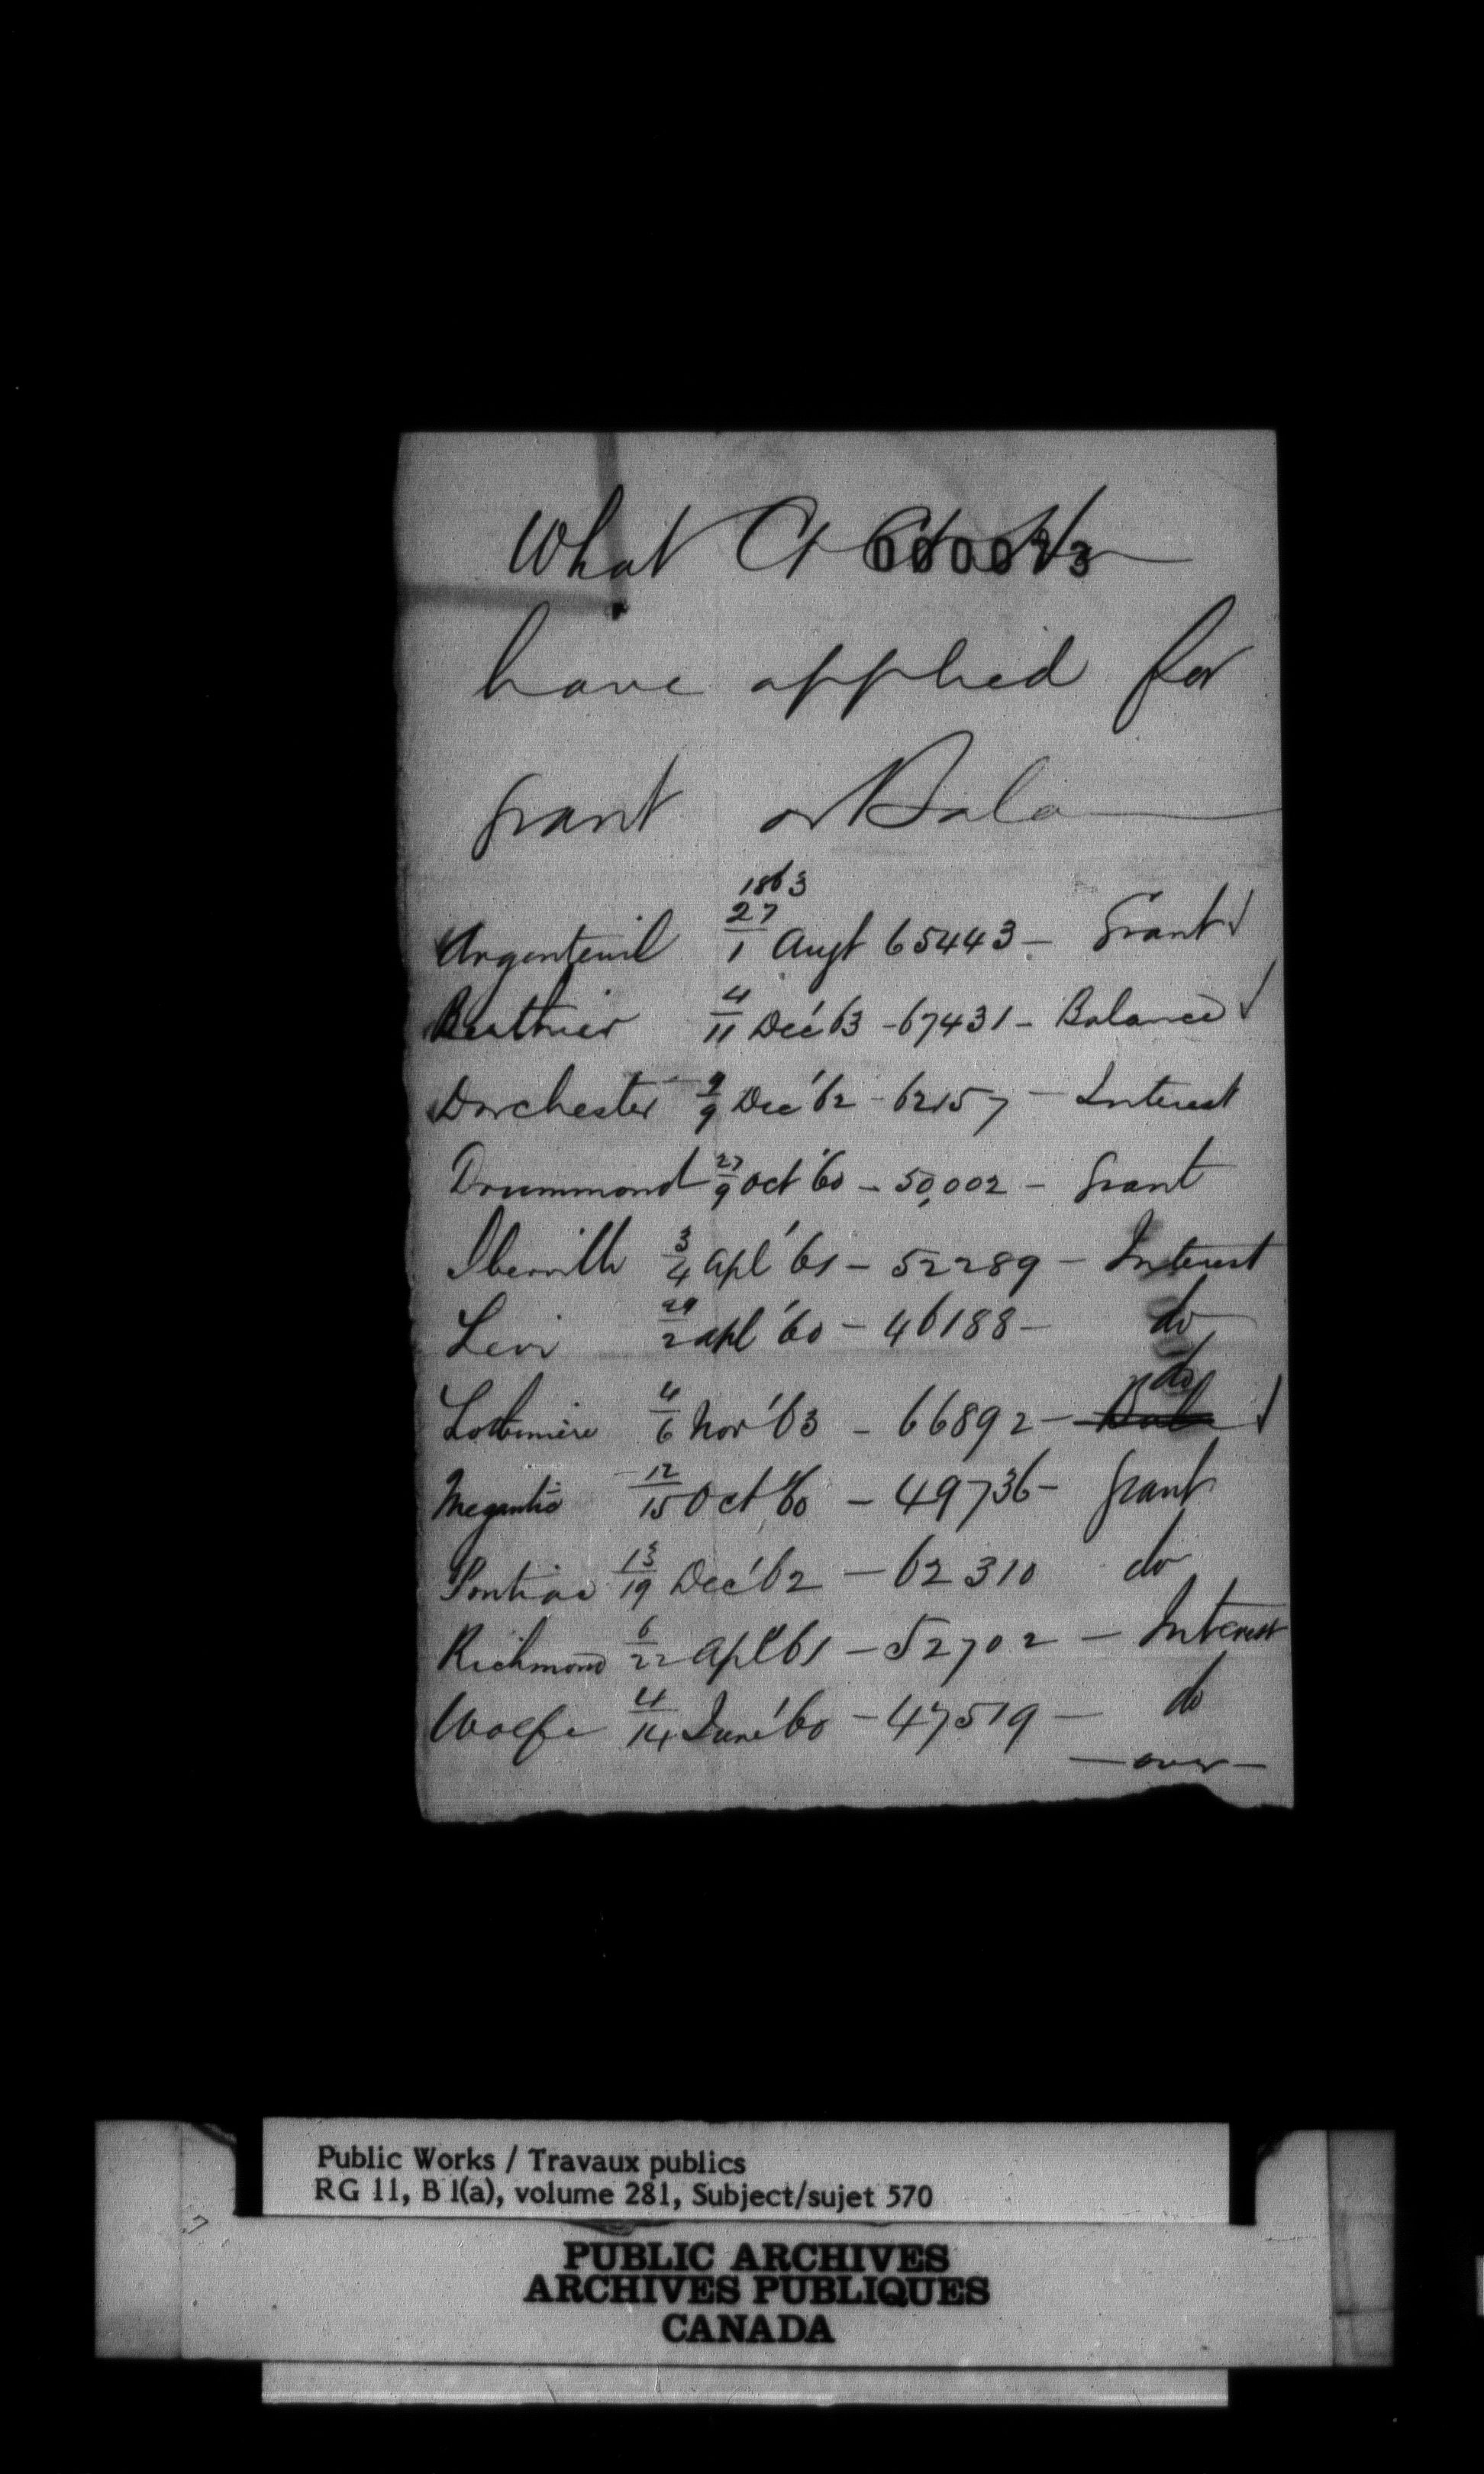 What Ct
000073
have applied for
grant or Bala
1863
Argenteuil 27/1 Augt 65443 - Grant ✓
Berthier 4/11 Dec' 63 - 67431 - Balance ✓
Dorchester 9/9 Dec' 62 - 62157 - Interest
Drummond 27/9 Oct '60 - 50,002 - Grant
Iberville 3/4 Apl '61 - 52289 - Interest
Levi 29/2 Apl '60 - 46188 - do
do
Lotbiniere 4/6 Nov '63 - 66892 - Bala ✓
Megantic 12/15 Oct '60 - 49736 - Grant
Pontiac 13/19 Dec' 62 - 62310 do
Richmond 6/22 Apl '61 - 52702 - Interest
Wolfe 4/14 June '60 - 47519 - do
- over -
Public Works / Travaux publics
RG 11, B 1(a), volume 281, Subject/sujet 570
PUBLIC ARCHIVES
ARCHIVES PUBLIQUES
CANADA